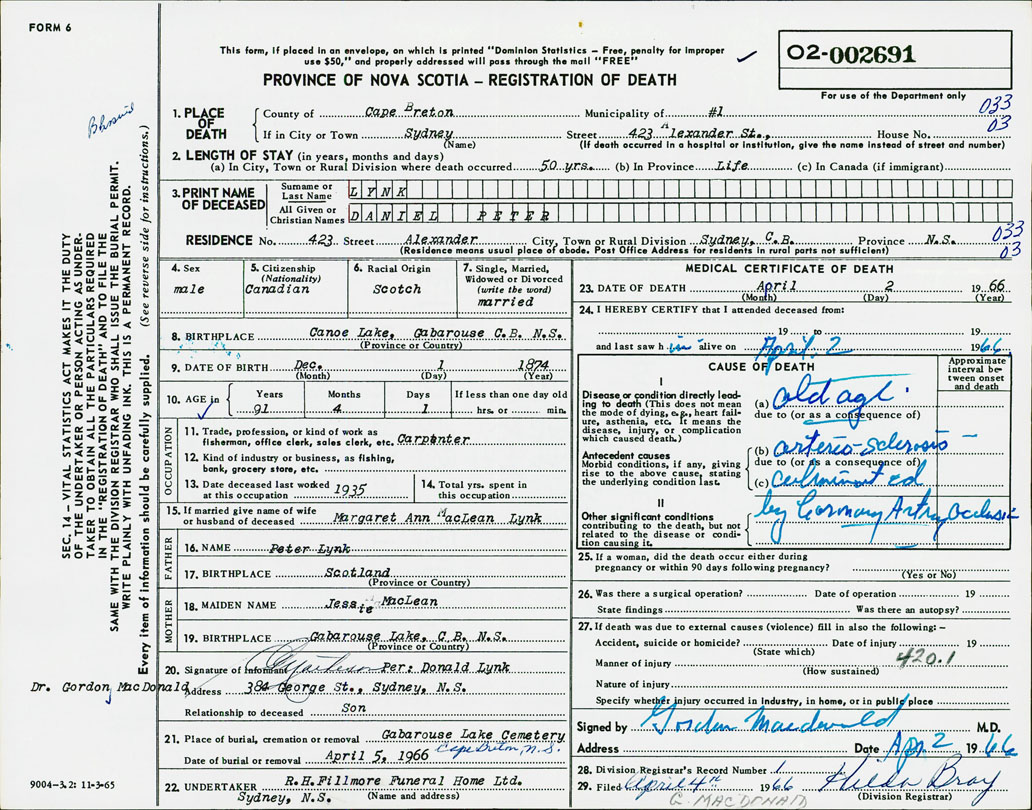 FORM 6
This form, if placed in an envelope, on which is printed "Dominion Statistics – Free, penalty for improper
use $50," and properly addressed will pass through the mail "FREE"
PROVINCE OF NOVA SCOTIA – REGISTRATION OF DEATH
02-002691
For use of the Department only
033
03
1. PLACE OF DEATH
County of Cape Breton Municipality of #1
If in City or Town Sydney Street 423 Alexander St., House No.
(Name) (If death occurred in a hospital or institution, give the name instead of street and number)
2. LENGTH OF STAY (in years, months and days)
(a) In City, Town or Rural Division where death occurred 50 yrs. (b) In Province Life (c) In Canada (if immigrant)
3. PRINT NAME OF DECEASED
Surname or Last Name LYNK
All Given or Christian Names DANIEL PETER
RESIDENCE No. 423 Street Alexander City, Town or Rural Division Sydney, C.B. Province N.S.
(Residence means usual place of abode. Post Office Address for residents in rural parts not sufficient)
033
03
4. Sex
male
5. Citizenship
(Nationality)
Canadian
6. Racial Origin
Scotch
7. Single, Married,
Widowed or Divorced
(write the word)
married
8. BIRTHPLACE Canoe Lake, Gabarouse C.B. N.S.
(Province or Country)
9. DATE OF BIRTH Dec. 1 1874
(Month) (Day) (Year)
10. AGE in
Years Months Days If less than one day old
91 4 1 hrs. or min.
OCCUPATION
11. Trade, profession, or kind of work as
fisherman, office clerk, sales clerk, etc. Carpinter
12. Kind of industry or business, as fishing,
bank, grocery store, etc.
13. Date deceased last worked
at this occupation 1935
14. Total yrs. spent in
this occupation
15. If married give name of wife
or husband of deceased Margaret Ann MacLean Lynk
FATHER
16. NAME Peter Lynk
17. BIRTHPLACE Scotland
(Province or Country)
MOTHER
18. MAIDEN NAME Jessie MacLean
19. BIRTHPLACE Gabarouse Lake, C B. N.S.
(Province or Country)
20. Signature of Informant Per: Donald Lynk
Address 384 George St., Sydney, N.S.
Relationship to deceased Son
21. Place of burial, cremation or removal Gabarouse Lake Cemetery
Cape Breton, N.S.
Date of burial or removal April 5, 1966
22. UNDERTAKER R.H.Fillmore Funeral Home Ltd.
Sydney, N.S. (Name and address)
MEDICAL CERTIFICATE OF DEATH
23. DATE OF DEATH April 2 1966
(Month) (Day) (Year)
24. I HEREBY CERTIFY that I attended deceased from:
19 to 19
and last saw him alive on April 2 1966
CAUSE OF DEATH
Approximate
interval be-
tween onset
and death
I
Disease or condition directly lead-
ing to death (This does not mean
the mode of dying, e.g., heart fail-
ure, asthenia, etc. It means the
disease, injury, or complication
which caused death.)
(a) old age.
due to (or as a consequence of)
Antecedent causes
Morbid conditions, if any, giving
rise to the above cause, stating
the underlying condition last.
(b) arterio-sclerosis –
due to (or as a consequence of)
(c)
II
Other significant conditions
contributing to the death, but not
related to the disease or condi-
tion causing it.
by Coronary Artry Occlusion
25. If a woman, did the death occur either during
pregnancy or within 90 days following pregnancy?
(Yes or No)
26. Was there a surgical operation? Date of operation 19
State findings Was there an autopsy?
27. If death was due to external causes (violence) fill in also the following:–
Accident, suicide or homicide? Date of injury 19
(State which)
420.1
Manner of injury
(How sustained)
Nature of injury
Specify whether injury occurred in Industry, in home, or in public place
Signed by Gordon Macdonald M.D.
Address Date Apr. 2 1966
28. Division Registrar's Record Number 1
29. Filed April 4th 1966 Hilda Bray
(Division Registrar)
G. MACDONALD
SEC. 14 – VITAL STATISTICS ACT MAKES IT THE DUTY
OF THE UNDERTAKER OR PERSON ACTING AS UNDER-
TAKER TO OBTAIN ALL THE PARTICULARS REQUIRED
IN THE "REGISTRATION OF DEATH" AND TO FILE THE
SAME WITH THE DIVISION REGISTRAR WHO SHALL ISSUE THE BURIAL PERMIT.
WRITE PLAINLY WITH UNFADING INK. THIS IS A PERMANENT RECORD.
Every item of information should be carefully supplied. (See reverse side for instructions.)
Dr. Gordon MacDonald
9004-3.2: 11-3-65